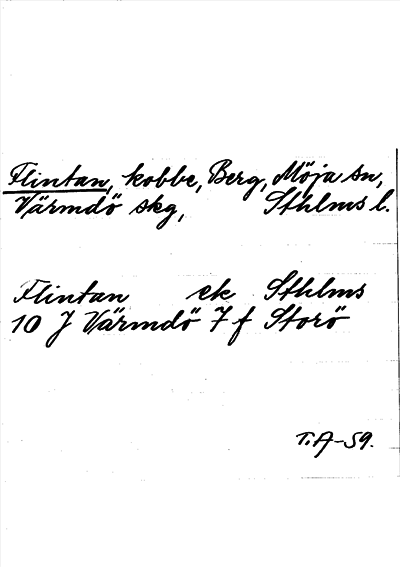 Flintan, kobbe, Berg, Möja sn,
Värmdö skg, Sthlms l.
Flintan ek Sthlms
10 J Värmdö 7 f Storö
T.A-59.